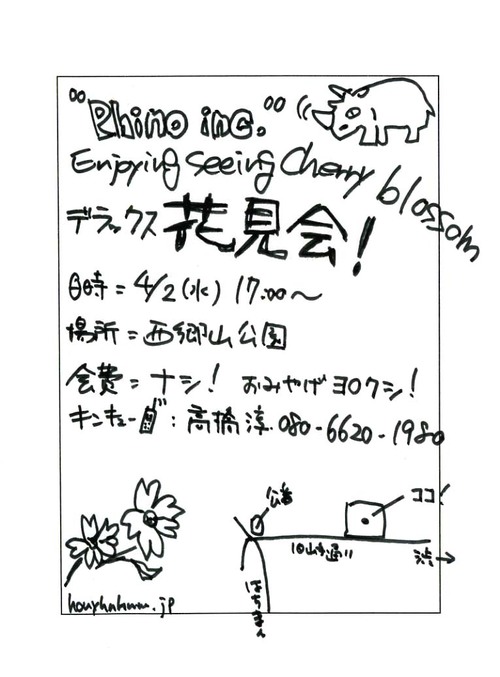 "Rhino inc."
Enjoying seeing Cherry blossom
デラックス 花見会!
日時 = 4/2 (水) 17:00〜
場所 = 西郷山公園
会費 = ナシ! おみやげヨロクシ!
キンキュー : 高橋 淳 080-6620-1980
ココ!
旧山手通り
渋→
.jp